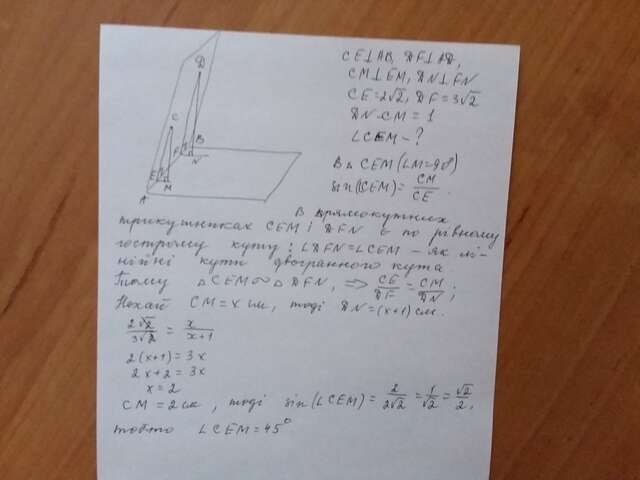 CE⊥AB, DF⊥AD,
CM⊥EM, DN⊥FN
CE=2√2, DF=3√2
DN-CM=1
∠CEM-?
D
C
B
F
N
E
M
A
В △ CEM (∠M=90°)
sin(∠CEM)=CM/CE.
В прямокутних
трикутниках CEM і DFN є по рівному
гострому куту: ∠DFN=∠CEM - як лі-
нійні кути двогранного кута.
Тому △CEM∾△DFN, ⇒ CE/DF=CM/DN;
Нехай CM=x см, тоді DN=(x+1) см.
2√2/3√2 = x/x+1
2(x+1)=3x
2x+2=3x
x=2
CM=2см, тоді sin(∠CEM)=2/2√2=1/√2=√2/2,
тобто ∠CEM=45°